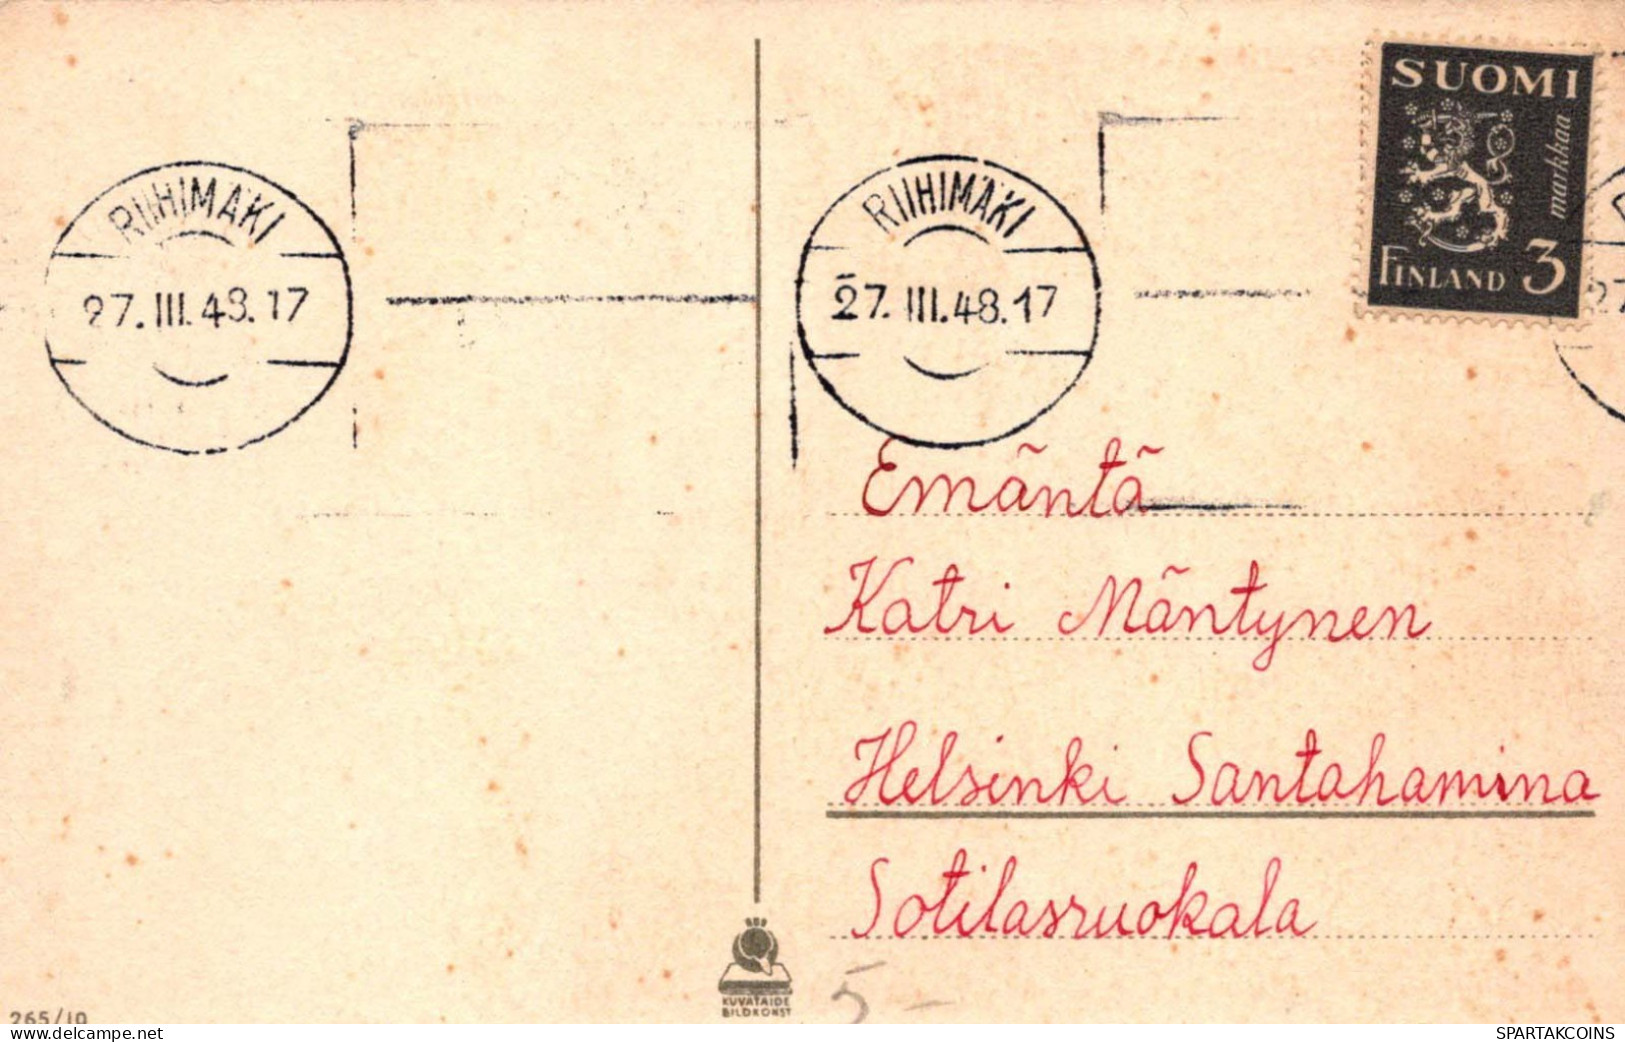 SUOMI
markkaa
FINLAND 3
RIIHIMÄKI
27.III.48.17
RIIHIMÄKI
27.III.48.17
27
Emäntä
Katri Mäntynen
Helsinki Santahamina
Sotilasruokala
5-
KUVATAIDE
BILDKONST
265/10
delcampe.net
mareksum
SPARTAKCOINS